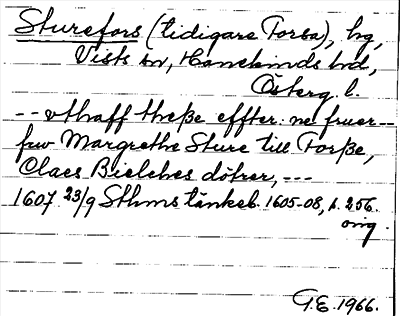 Sturefors (tidigare Torba), hg,
Vists sn, Hanekinds hd,
Österg. l.
-- vthaff theße effter: ne fruer --
fru Margrethe Sture till Torße,
Claes Bielches dötrer, ---
1607 23/9 Sthms tänkeb. 1605-08, s. 256.
orig.
G.E. 1966.